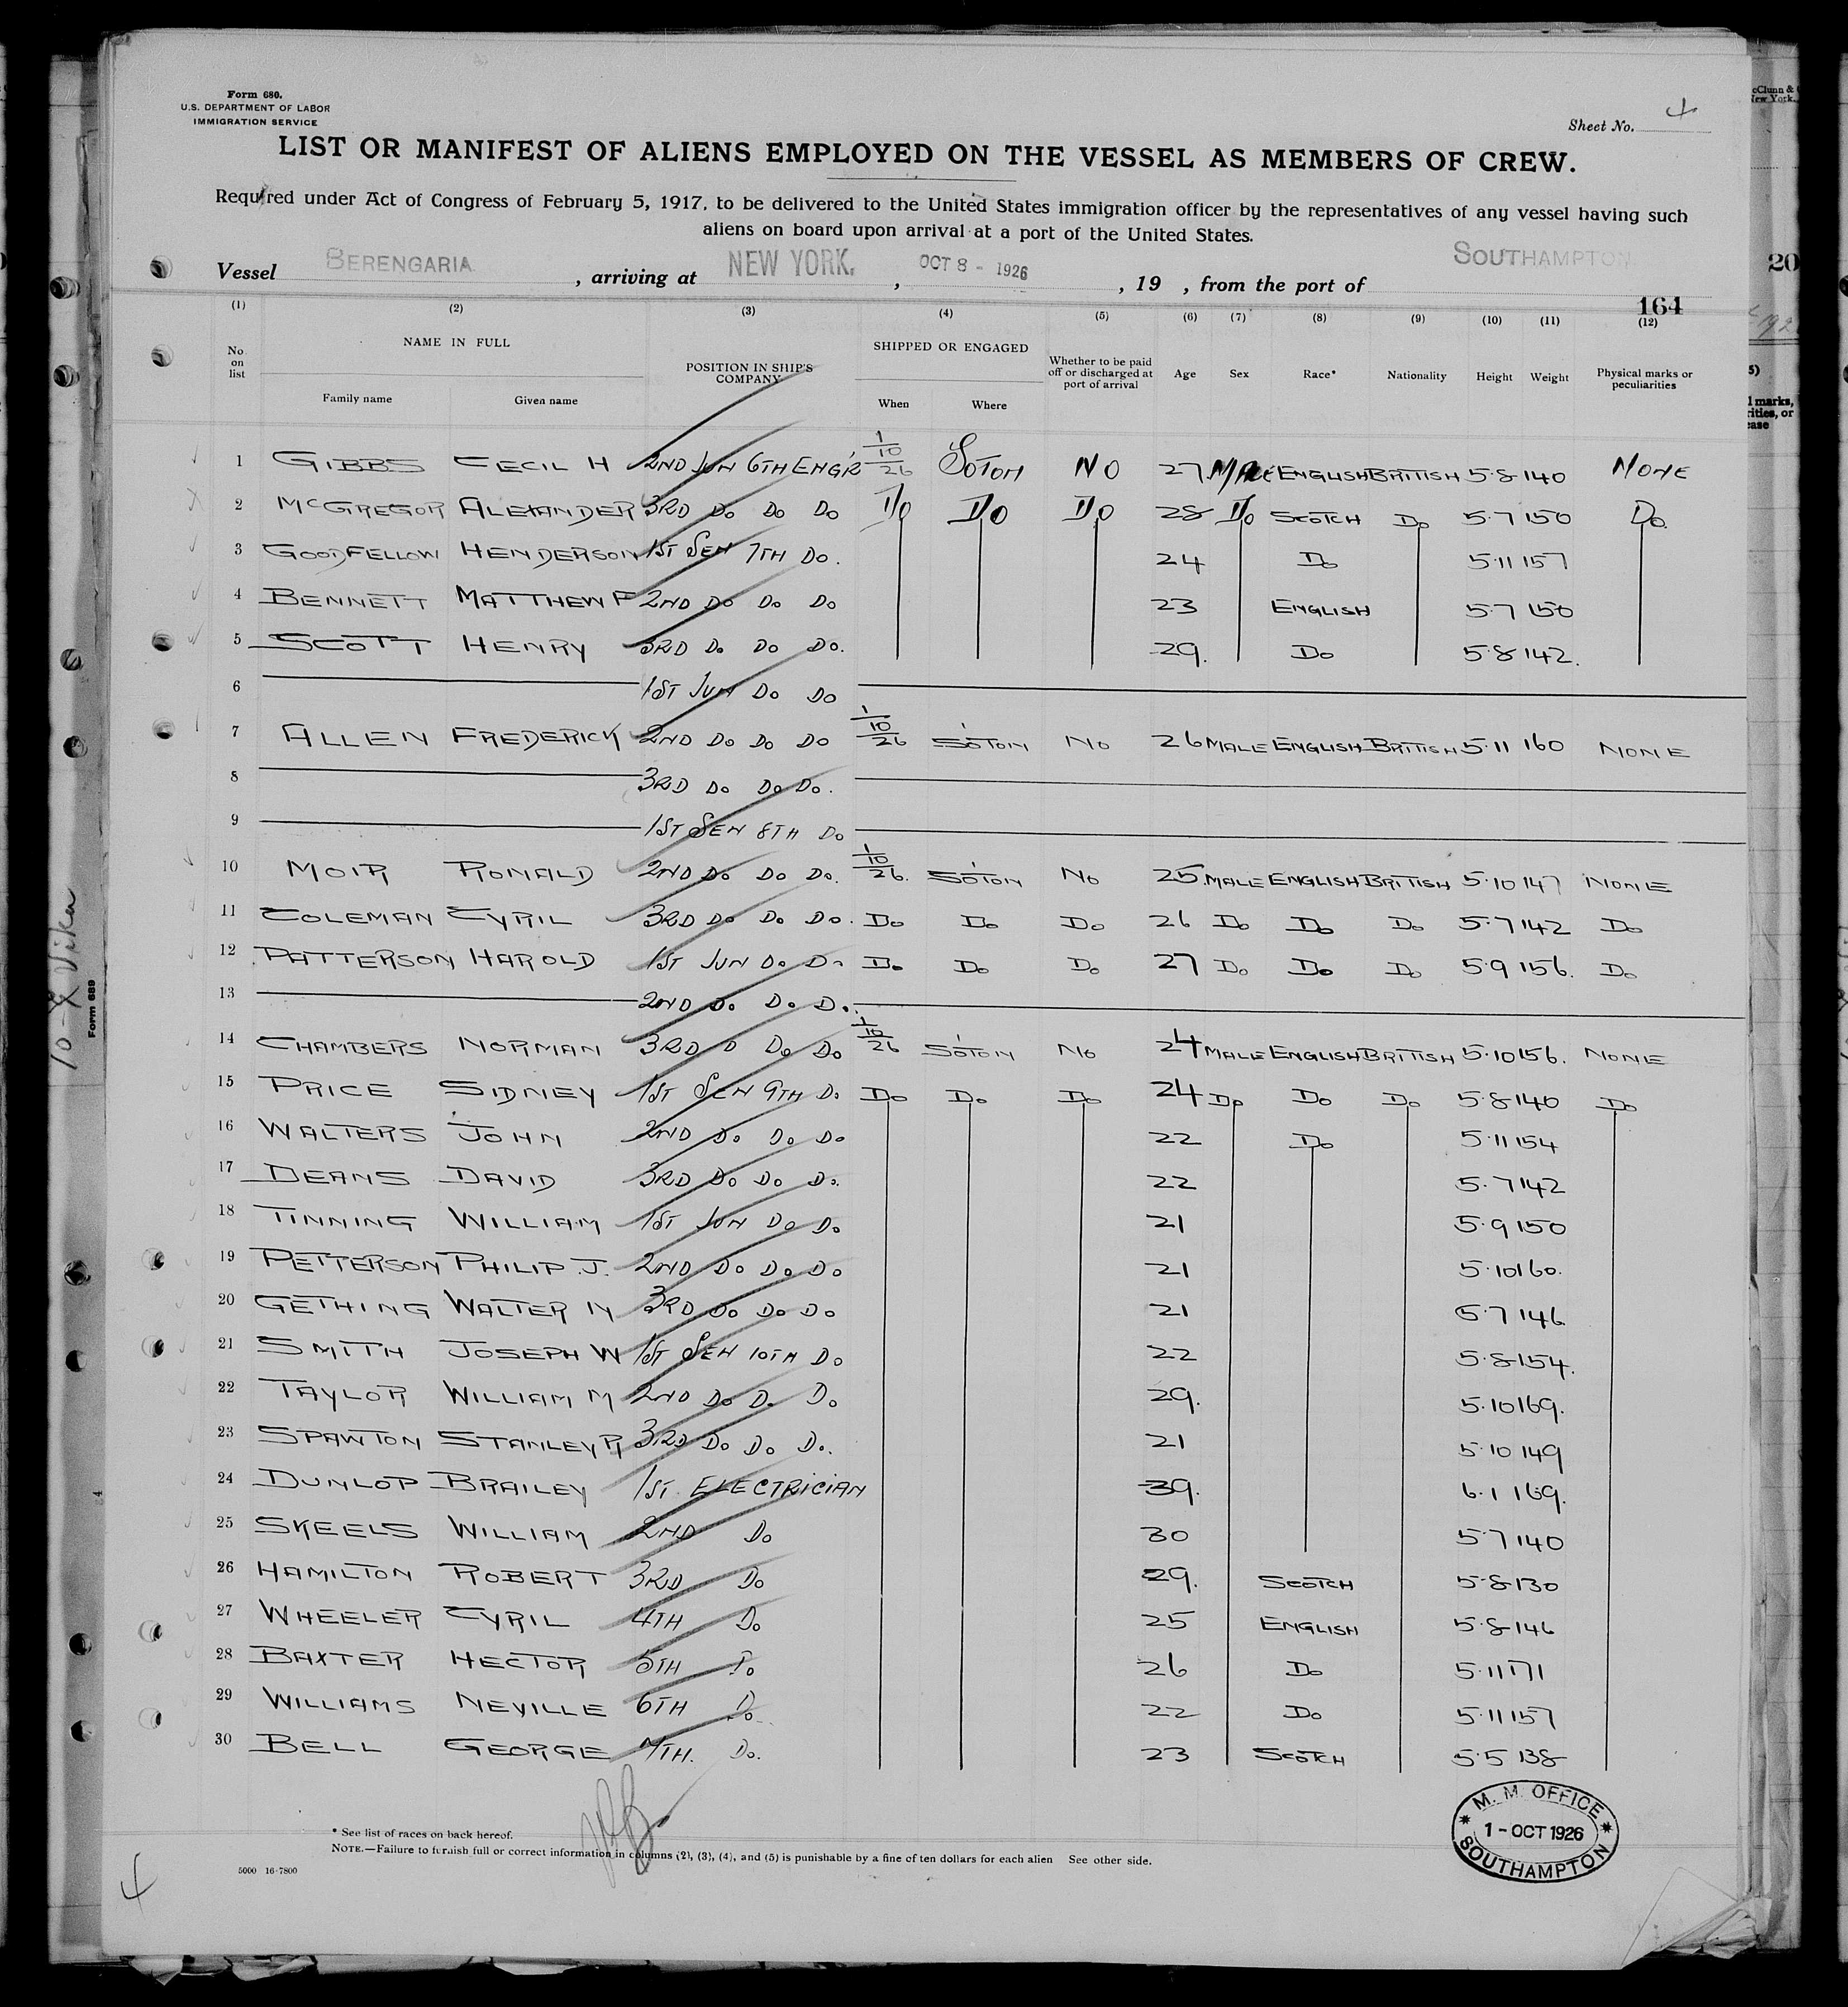 Form 680.
U.S. DEPARTMENT OF LABOR
IMMIGRATION SERVICE
Sheet No. 4
LIST OR MANIFEST OF ALIENS EMPLOYED ON THE VESSEL AS MEMBERS OF CREW.
Required under Act of Congress of February 5, 1917, to be delivered to the United States immigration officer by the representatives of any vessel having such
aliens on board upon arrival at a port of the United States.
Vessel BERENGARIA , arriving at NEW YORK. , OCT 8 - 1926 , 19 , from the port of SOUTHAMPTON
164
(1) (2) (3) (4) (5) (6) (7) (8) (9) (10) (11) (12)
No on list NAME IN FULL Family name Given name POSITION IN SHIP'S COMPANY SHIPPED OR ENGAGED When Where Whether to be paid off or discharged at port of arrival Age Sex Race* Nationality Height Weight Physical marks or peculiarities
1 GIBBS CECIL H 2ND JUN 6TH ENG'R 1/10/26 SOTON NO 27 MALE ENGLISH BRITISH 5·8 140 NONE
2 McGREGOR ALEXANDER 3RD Do Do Do Do Do Do 28 Do SCOTCH Do 5·7 150 Do
3 GOODFELLOW HENDERSON 1ST SEN 7TH Do. 24 Do 5·11 157
4 BENNETT MATTHEW F 2ND Do Do Do 23 ENGLISH 5·7 150
5 SCOTT HENRY 3RD Do Do Do. 29. Do 5·8 142.
6 1ST JUN Do Do
7 ALLEN FREDERICK 2ND Do Do Do 1/10/26 SOTON No 26 MALE ENGLISH BRITISH 5·11 160 NONE
8 3RD Do Do Do.
9 1ST SEN 8TH Do
10 MOIR RONALD 2ND Do Do Do. 1/10/26. SOTON No 25. MALE ENGLISH BRITISH 5·10 147 NONE
11 COLEMAN CYRIL 3RD Do Do Do. Do Do Do 26 Do Do Do 5·7 142 Do
12 PATTERSON HAROLD 1ST JUN Do Do Do Do Do 27 Do Do Do 5·9 156. Do
13 2ND Do Do Do.
14 CHAMBERS NORMAN 3RD D Do Do 1/10/26 SOTON No 24 MALE ENGLISH BRITISH 5·10 156. NONE
15 PRICE SIDNEY 1ST SEN 9TH Do Do Do Do 24 Do Do Do 5·8 140 Do
16 WALTERS JOHN 2ND Do Do Do 22 Do 5·11 154
17 DEANS DAVID 3RD Do Do Do. 22 5·7 142
18 TINNING WILLIAM 1ST JUN Do Do 21 5·9 150
19 PETTERSON PHILIP. J. 2ND Do Do Do 21 5·10 160.
20 GETHING WALTER N 3RD Do Do Do 21 5·7 146
21 SMITH JOSEPH W 1ST SEN 10TH Do 22 5·8 154.
22 TAYLOR WILLIAM M 2ND Do Do Do 29. 5·10 169.
23 SPAWTON STANLEY R 3RD Do Do Do. 21 5·10 149
24 DUNLOP BRAILEY 1ST. ELECTRICIAN 39. 6·1 169.
25 SKEELS WILLIAM 2ND Do 30 5·7 140
26 HAMILTON ROBERT 3RD Do 29. SCOTCH 5·8 130
27 WHEELER CYRIL 4TH Do 25 ENGLISH 5·8 146
28 BAXTER HECTOR 5TH Do 26 Do 5·11 171
29 WILLIAMS NEVILLE 6TH Do 22 Do 5·11 157
30 BELL GEORGE 7TH. Do. 23 SCOTCH 5·5 138
M. M. OFFICE
1-OCT 1926
SOUTHAMPTON
* See list of races on back hereof.
NOTE.—Failure to furnish full or correct information in columns (2), (3), (4), and (5) is punishable by a fine of ten dollars for each alien See other side.
5000 16-7800
4
Form 689